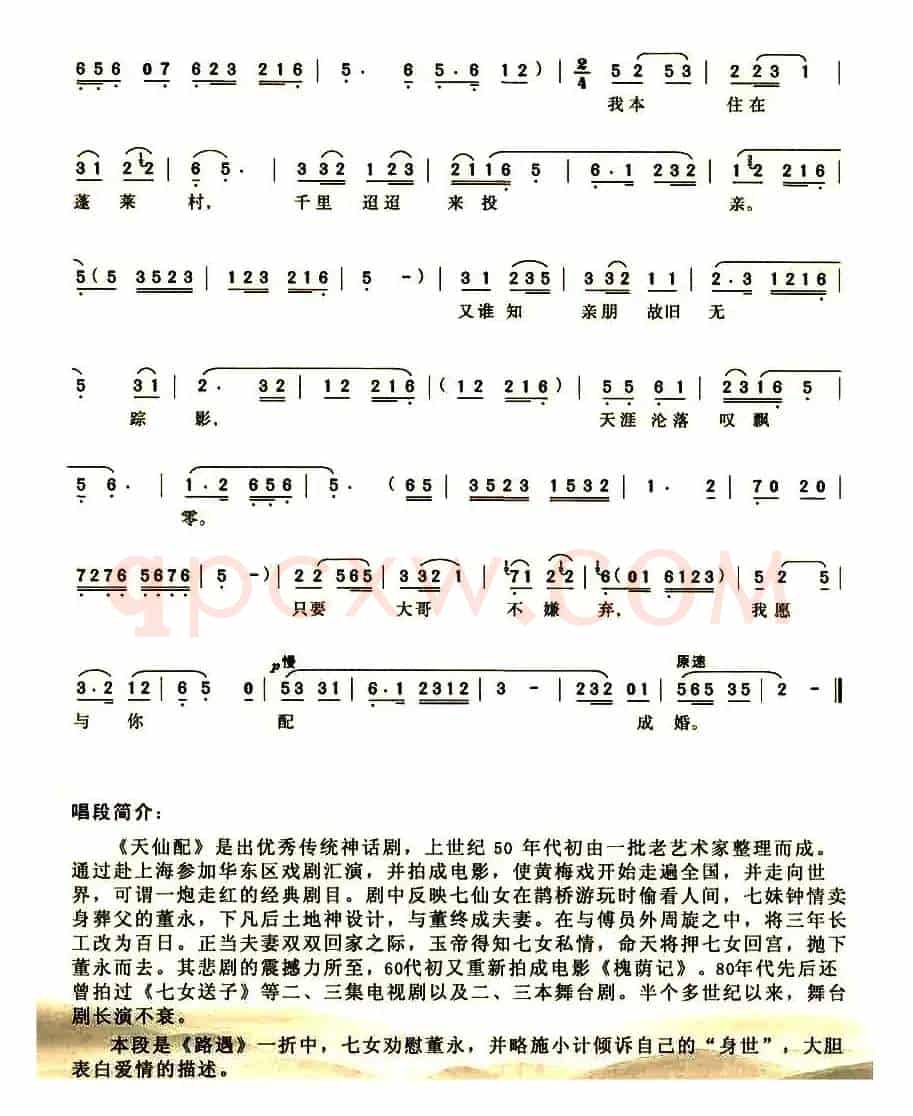 6 5 6 0 7 6 2 3 2 1 6 | 5 · 6 5 · 6 1 2 ) | 2/4 5 2 5 3 | 2 2 3 1 |
我本 住在
3 1 2 1 2 | 6 5 · | 3 3 2 1 2 3 | 2 1 1 6 5 | 6 · 1 2 3 2 | 1 2 2 1 6 |
蓬 莱 村， 千里 迢迢 来 投 亲。
5 ( 5 3 5 2 3 | 1 2 3 2 1 6 | 5 - ) | 3 1 2 3 5 | 3 3 2 1 1 | 2 · 3 1 2 1 6 |
又谁 知 亲朋 故旧 无
5 3 1 | 2 · 3 2 | 1 2 2 1 6 | ( 1 2 2 1 6 ) | 5 5 6 1 | 2 3 1 6 5 |
踪 影， 天涯 沦落 叹 飘
5 6 · | 1 · 2 6 5 6 | 5 · ( 6 5 | 3 5 2 3 1 5 3 2 | 1 · 2 | 7 0 2 0 |
零。
7 2 7 6 5 6 7 6 | 5 - ) | 2 2 5 6 5 | 3 3 2 1 | 7 1 2 2 | 6 ( 0 1 6 1 2 3 ) | 5 2 5 |
只要 大哥 不 嫌 弃， 我愿
qpcxw.COM
p 慢 原速
3 · 2 1 2 | 6 5 0 | 5 3 3 1 | 6 · 1 2 3 1 2 | 3 - | 2 3 2 0 1 | 5 6 5 3 5 | 2 - ‖
与 你 配 成 婚。
唱段简介：
《天仙配》是出优秀传统神话剧，上世纪 50 年代初由一批老艺术家整理而成。
通过赴上海参加华东区戏剧汇演，并拍成电影，使黄梅戏开始走遍全国，并走向世
界，可谓一炮走红的经典剧目。剧中反映七仙女在鹊桥游玩时偷看人间，七妹钟情卖
身葬父的董永，下凡后土地神设计，与董终成夫妻。在与傅员外周旋之中，将三年长
工改为百日。正当夫妻双双回家之际，玉帝得知七女私情，命天将押七女回宫，抛下
董永而去。其悲剧的震撼力所至，60代初又重新拍成电影《槐荫记》。80年代先后还
曾拍过《七女送子》等二、三集电视剧以及二、三本舞台剧。半个多世纪以来，舞台
剧长演不衰。
本段是《路遇》一折中，七女劝慰董永，并略施小计倾诉自己的“身世”，大胆
表白爱情的描述。